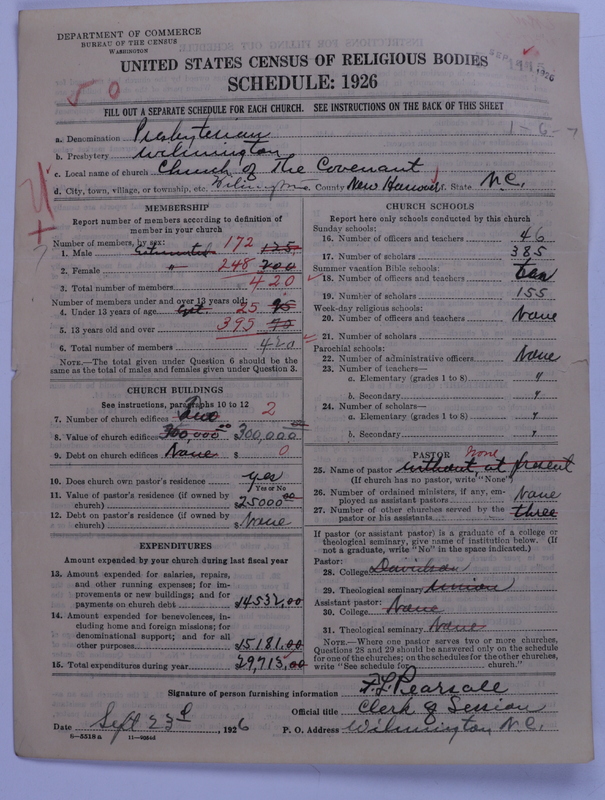 DEPARTMENT OF COMMERCE
BUREAU OF THE CENSUS
WASHINGTON
UNITED STATES CENSUS OF RELIGIOUS BODIES
SCHEDULE: 1926
SEP 1926
5 0
FILL OUT A SEPARATE SCHEDULE FOR EACH CHURCH. SEE INSTRUCTIONS ON THE BACK OF THIS SHEET
1-6-7
a. Denomination Presbyterian
b. Presbytery Wilmington
c. Local name of church Church of The Covenant
d. City, town, village, or township, etc. Wilmington County New Hanover State N.C.
MEMBERSHIP
Report number of members according to definition of
member in your church
Number of members, by sex:
1. Male Estimated 172 175
2. Female " 248 200
3. Total number of members 420
Number of members under and over 13 years old:
4. Under 13 years of age Est. 25
5. 13 years old and over 395
6. Total number of members 420
NOTE.—The total given under Question 6 should be the
same as the total of males and females given under Question 3.
CHURCH BUILDINGS
See instructions, paragraphs 10 to 12
7. Number of church edifices Two 2
8. Value of church edifices 300,000.00 $300,000.00
9. Debt on church edifices None $ 0
10. Does church own pastor's residence yes
Yes or No
11. Value of pastor's residence (if owned by
church) $25000.00
12. Debt on pastor's residence (if owned by
church) $ None
EXPENDITURES
Amount expended by your church during last fiscal year
13. Amount expended for salaries, repairs,
and other running expenses; for im-
provements or new buildings; and for
payments on church debt $14532.00
14. Amount expended for benevolences, in-
cluding home and foreign missions; for
denominational support; and for all
other purposes $15181.00
15. Total expenditures during year $29,713.00
CHURCH SCHOOLS
Report here only schools conducted by this church
Sunday schools:
16. Number of officers and teachers 46
17. Number of scholars 385
Summer vacation Bible schools:
18. Number of officers and teachers
19. Number of scholars 155
Week-day religious schools:
20. Number of officers and teachers None
21. Number of scholars
Parochial schools:
22. Number of administrative officers None
23. Number of teachers—
a. Elementary (grades 1 to 8) "
b. Secondary "
24. Number of scholars—
a. Elementary (grades 1 to 8) "
b. Secondary "
PASTOR
None
25. Name of pastor without at present
(If church has no pastor, write "None")
26. Number of ordained ministers, if any, em-
ployed as assistant pastors None
27. Number of other churches served by the
pastor or his assistants three
If pastor (or assistant pastor) is a graduate of a college or
theological seminary, give name of institution below. (If
not a graduate, write "No" in the space indicated.)
Pastor:
28. College Davidson
29. Theological seminary Union
Assistant pastor:
30. College None
31. Theological seminary None
NOTE.—Where one pastor serves two or more churches,
Questions 28 and 29 should be answered only on the schedule
for one of the churches; on the schedules for the other churches,
write "See schedule for church."
Signature of person furnishing information F. L. Pearsall
Official title Clerk of Session
Date Sept 23d, 1926 P. O. Address Wilmington N.C.
6-5518 a